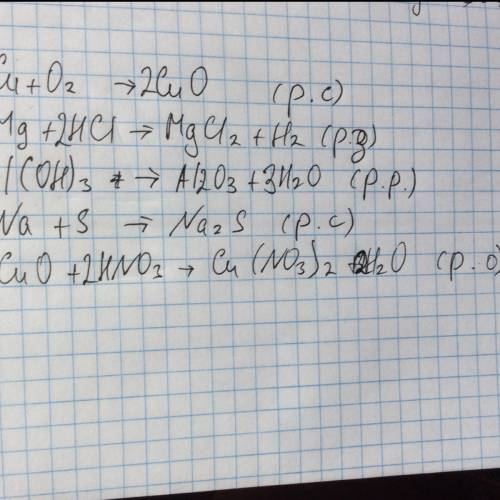 Cu + O2 → 2CuO (р.с)
Mg + 2HCl → MgCl2 + H2 (р.з)
l(OH)3 → Al2O3 + 3H2O (р.р.)
Na + S → Na2S (р.с)
CuO + 2HNO3 → Cu(NO3)2 + H2O (р.о)